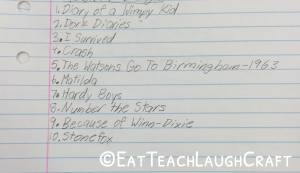 1. Diary of a Wimpy Kid
2. Dork Diaries
3. I Survived
4. Crash
5. The Watsons Go To Birmingham-1963
6. Matilda
7. Hardy Boys
8. Number the Stars
9. Because of Winn-Dixie
10. Stonefox
©EATTEACHLAUGHCRAFT